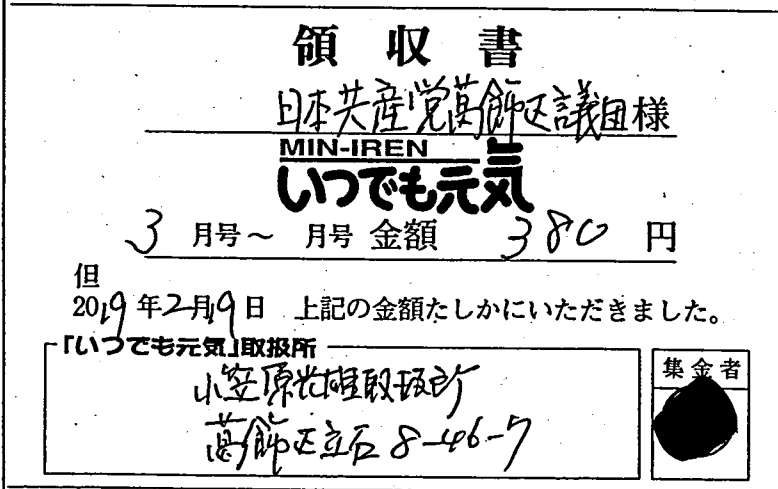 領収書
日本共産党葛飾区議団様
MIN-IREN
いつでも元気
3月号～ 月号 金額 380円
但
2019年2月19日 上記の金額たしかにいただきました。
「いつでも元気」取扱所
小笠原光雄取扱所
葛飾区立石8-46-7
集金者